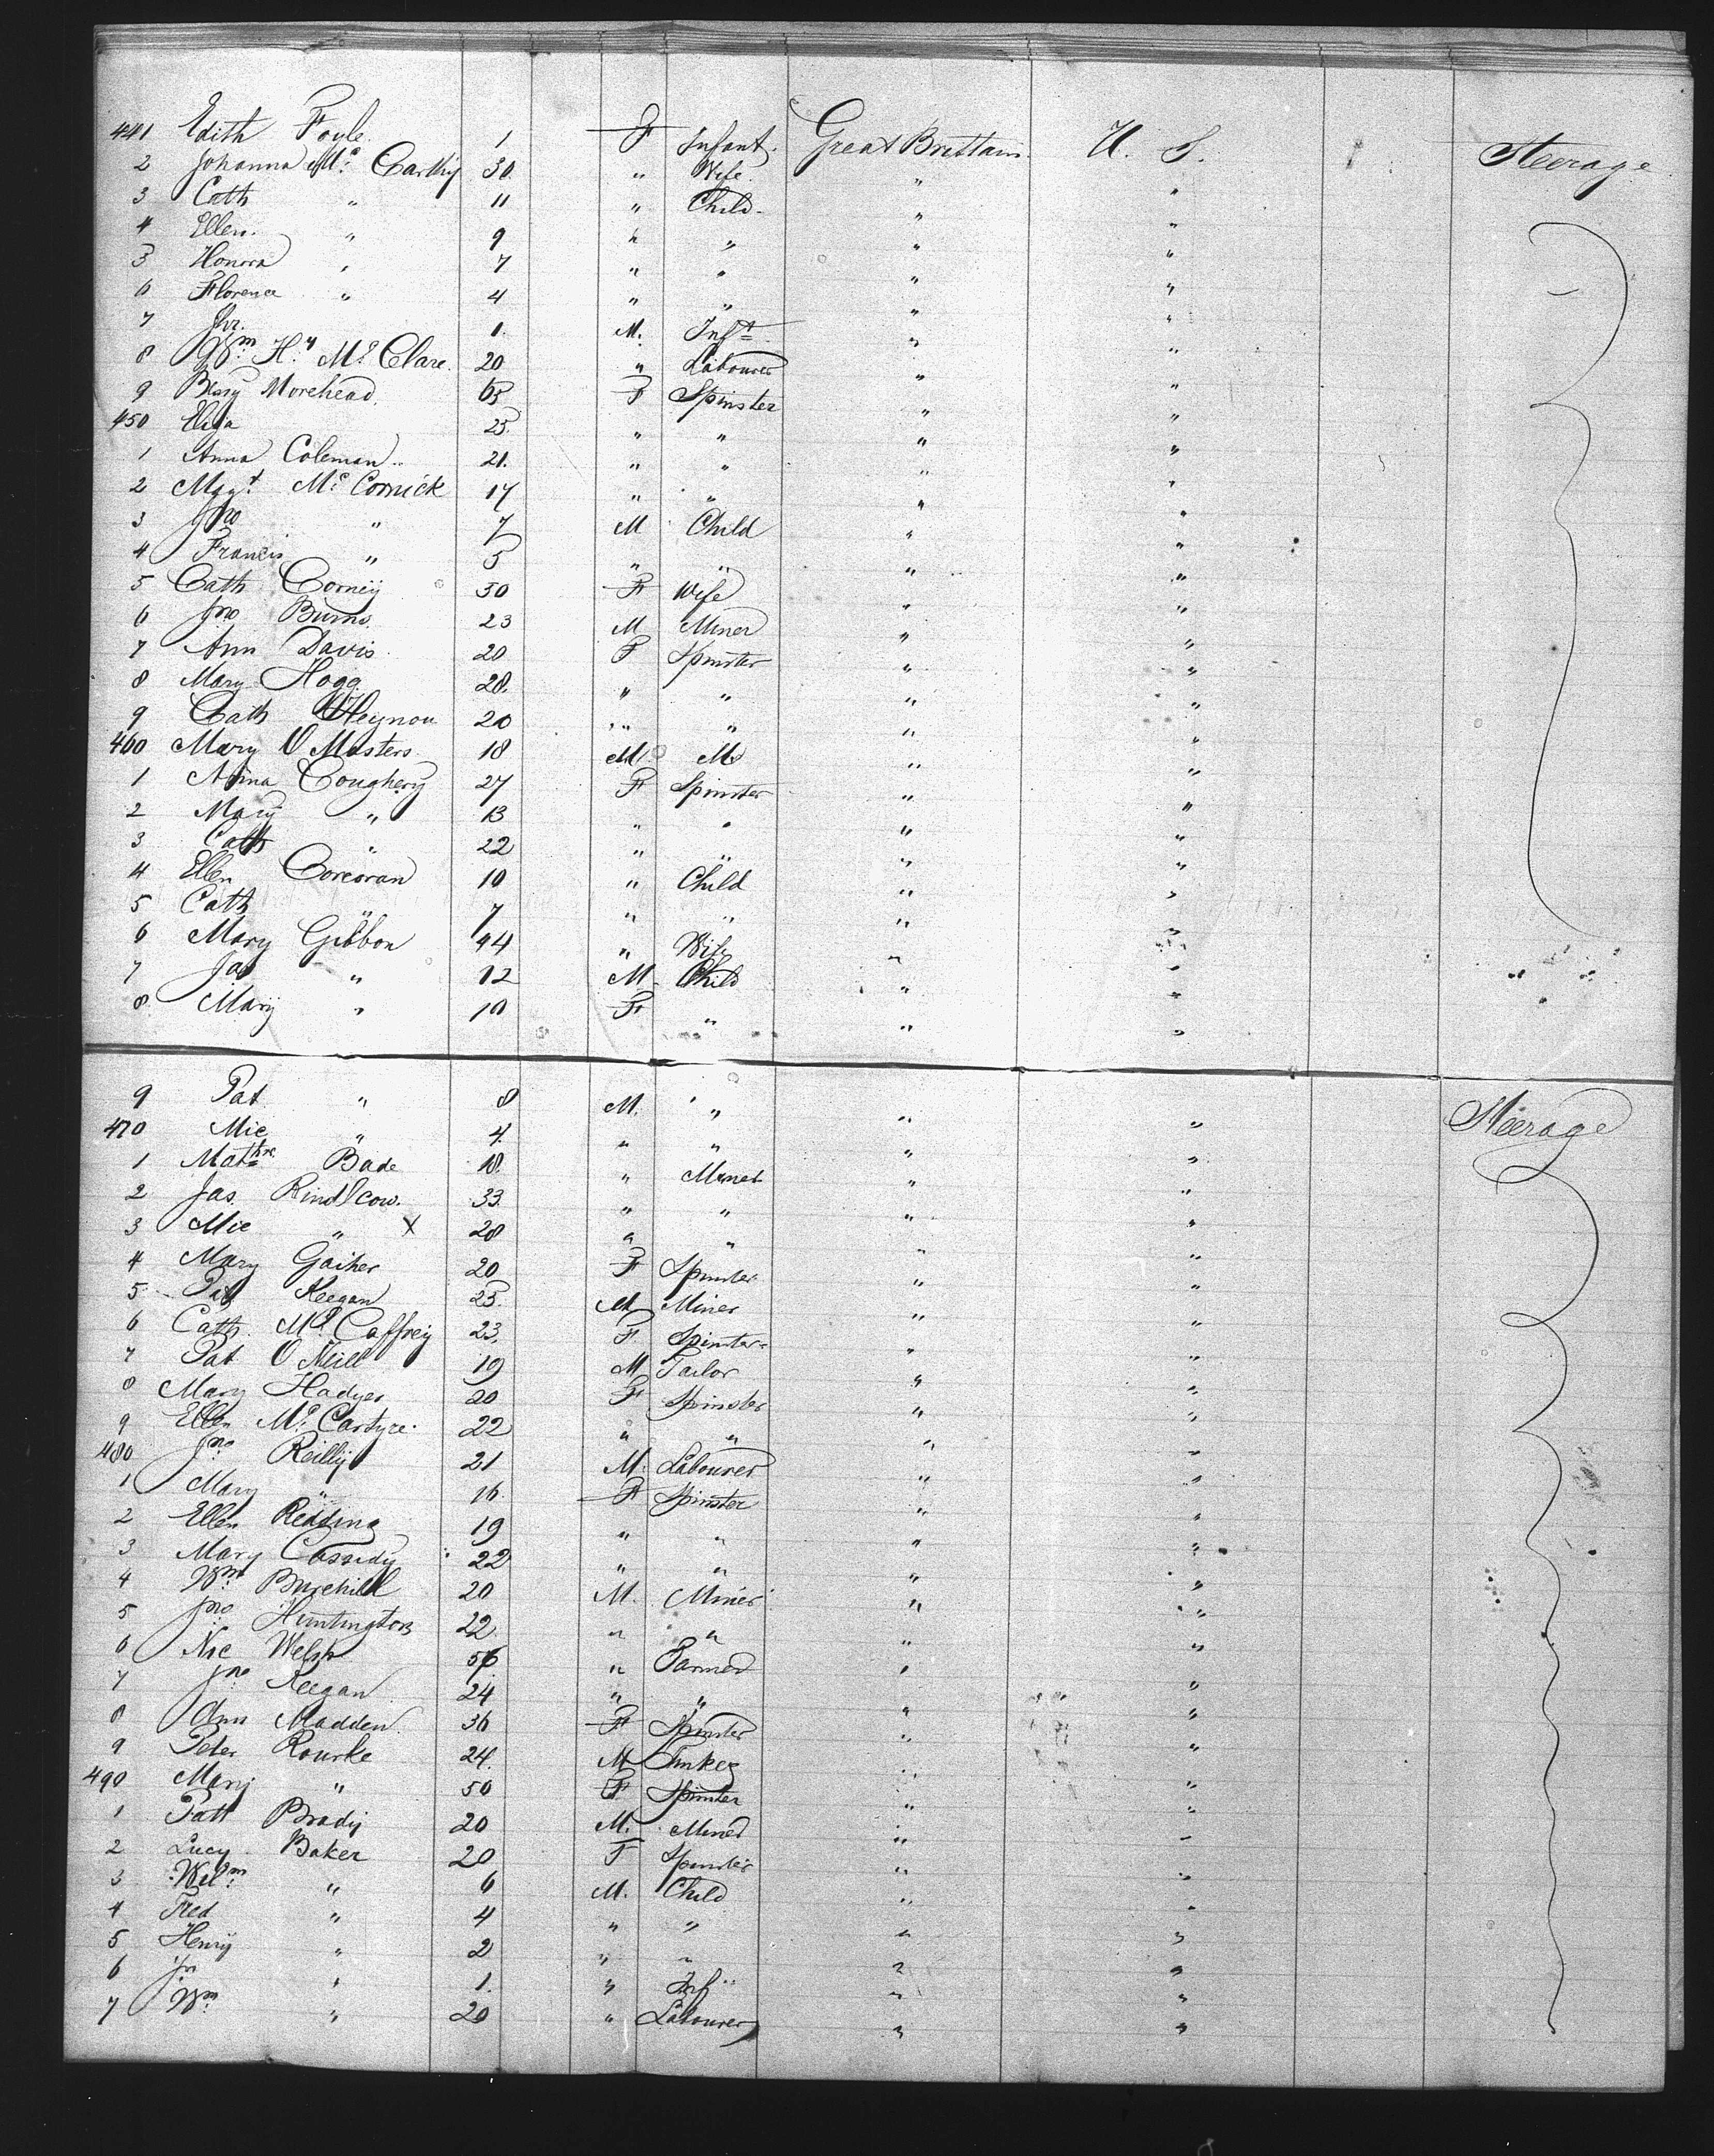 441 Edith Foyle. 1 F Infant. Great Brittain. U. S. Steerage
2 Johanna Mc. Carthy 30. " Wife. " "
3 Cath " 11 " Child. " "
4 Ellen. " 9 " " " "
5 Honora " 7 " " " "
6 Florence " 4 " " " "
7 Jno. 1. M. Inft. " "
8 Wm. Hy. Mc. Clare. 20 " Labourer " "
9 Mary Morehead. 63 F Spinster " "
450 Eliza 23. " " " "
1 Anna Coleman .. 21. " " " "
2 Magt. Mc. Cornick 17 " " " "
3 Jno " 7 M Child " "
4 Francis " 5 " " " "
5 Cath Corney 30 F Wife " "
6 Jno Burns. 23 M Miner " "
7 Ann Davis. 20 F Spinster " "
8 Mary Hogg 28. " " " "
9 Cath Heynou 20 " " " "
460 Mary O Masters. 18 M. M " "
1 Anna Coughery 27 F Spinster " "
2 Mary " 13 " " " "
3 Cath " 22 " " " "
4 Ellen Corcoran 10 " Child " "
5 Cath " 7 " " " "
6 Mary Gibbon 44 " Wife " "
7 Jas " 12 M. Child " "
8 Mary " 10 F " " "
9 Pat " 8 M. " " " Steerage
470 Mic " 4. " " " "
1 Matthw. Bade 18. " Miner " "
2 Jas. Rindlcow. 33. " " " "
3 Mic " X 28 " " " "
4 Mary Gaiher 20 F Spinster " "
5 Pat Keegan 23. M Miner " "
6 Cath. Mc. Caffrey 23. F Spinster " "
7 Pat O Neill 19 M Tailor " "
8 Mary Hadyer 20 F Spinster " "
9 Ellen Mc. Cartyre. 22 " " " "
480 Jno. Reilly 21 M. Labourer " "
1 Mary " 16. F Spinster " "
2 Ellen Redding 19 " " " "
3 Mary Cassidy 22 " " " "
4 Wm. Burchill 20 M. Miner " "
5 Jno. Huntington 22 " " " "
6 Nic Welsh 56. " Farmer " "
7 Jno. Keegan 24 " " " "
8 Ann Madden. 36 F Spinster " "
9 Peter Rourke 24. M Tinker " "
490 Mary " 50 F Spinster " "
1 Patt Brady 20 M. Miner " "
2 Lucy. Baker 20 F Spinster " "
3 Willm. " 6 M. Child " "
4 Fred " 4 " " " "
5 Henry " 2 " " " "
6 Jn " 1. " Inf " "
7 Wm. " 20 " Labourer " "